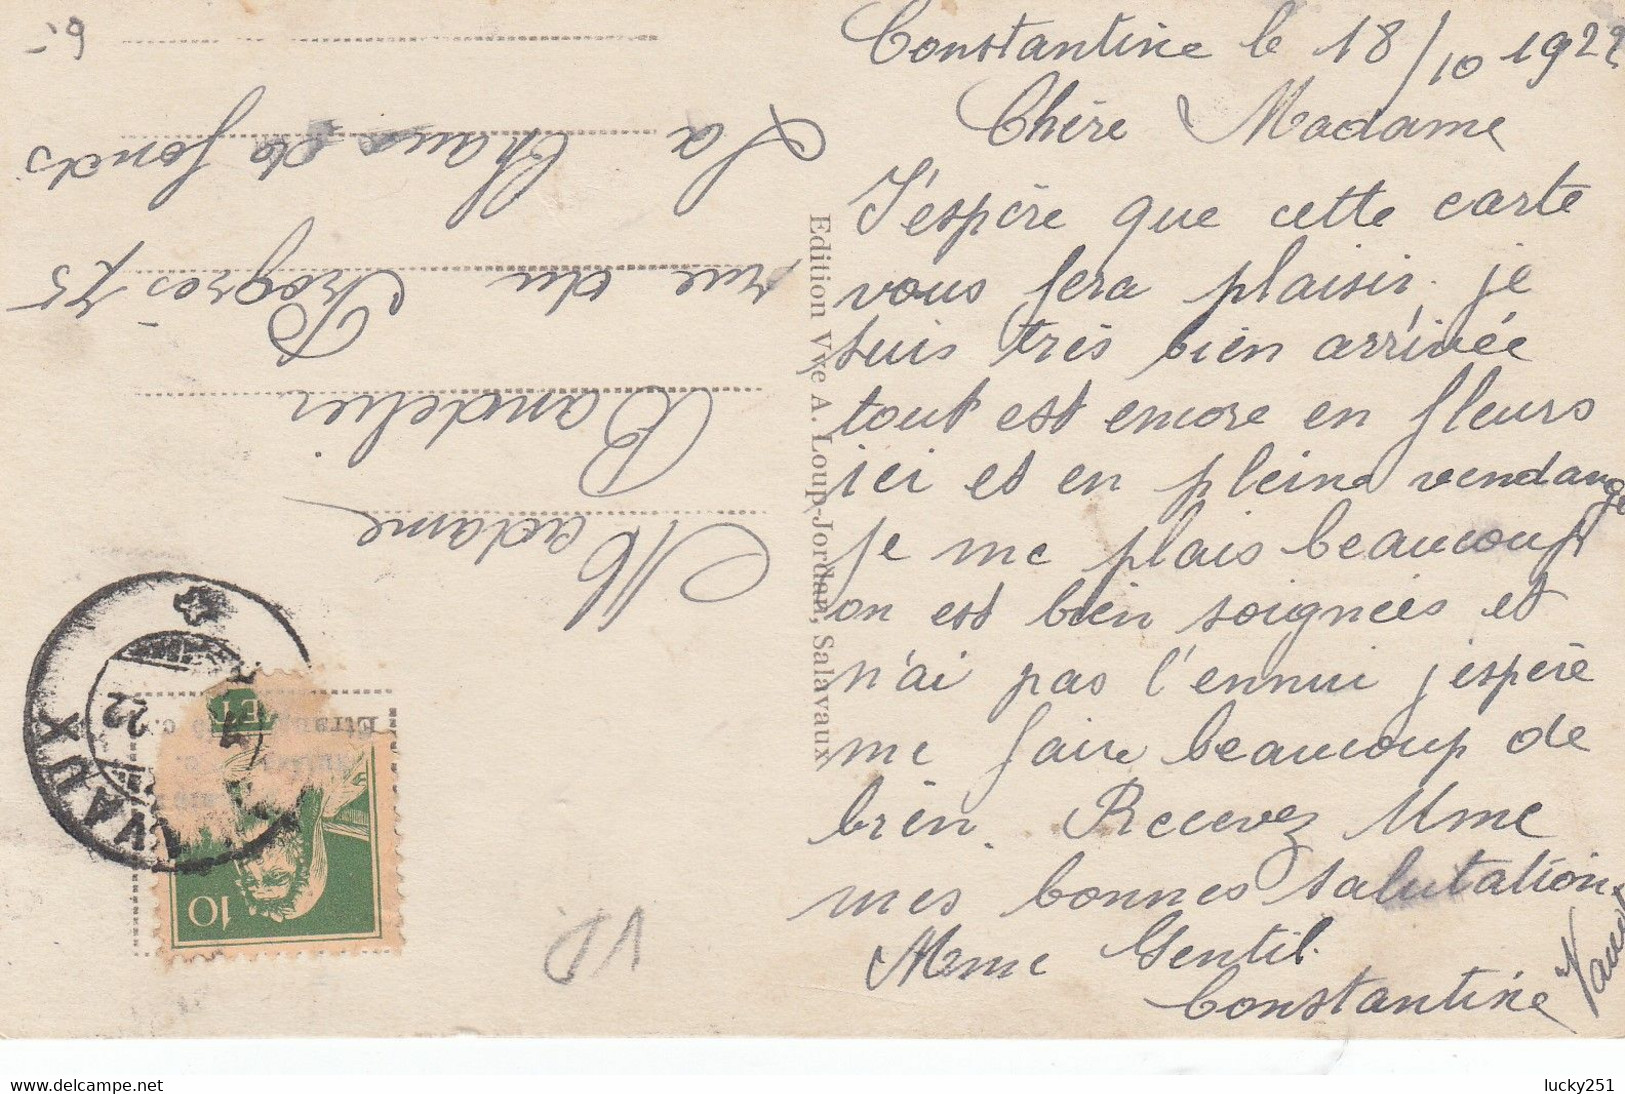 Constantine le 18/10 1922
Chère Madame
J'espère que cette carte
vous fera plaisir. je
suis très bien arrivée
tout est encore en fleurs
ici et en pleine vendange
je me plais beaucoup
on est bien soignées et
n'ai pas l'ennui j'espère
me faire beaucoup de
bien. Recevez Mme
mes bonnes salutations
Mme Gentil.
Constantine
Vaud
Edition Vve A. Loup-Jordan, Salavaux
Madame
Bandelier
rue du Progrès 75
La Chaux de fonds
10
22
lucky251